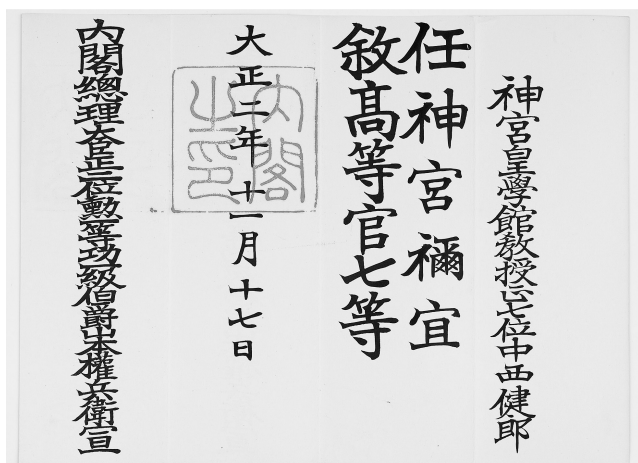 神宮皇學館教授正七位中西健郎
任神宮禰宜
敘高等官七等
大正二年十一月十七日
內閣之印
內閣總理大臣正二位勳一等功一級伯爵山本權兵衛宣